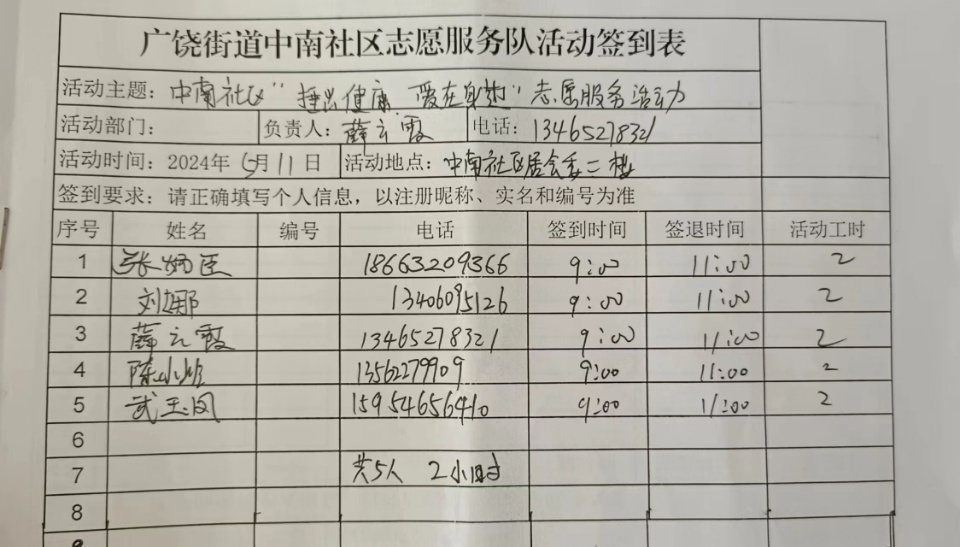 广饶街道中南社区志愿服务队活动签到表
活动主题：中南社区"捶出健康 爱在身边"志愿服务活动
活动部门： 负责人：薛云霞 电话：13465278321
活动时间：2024年5月11日 活动地点：中南社区居委二楼
签到要求：请正确填写个人信息，以注册昵称、实名和编号为准
序号 姓名 编号 电话 签到时间 签退时间 活动工时
1 张 臣 18663209366 9:00 11:00 2
2 刘娜 13406095126 9:00 11:00 2
3 薛云霞 13465278321 9:00 11:00 2
4 陈小 13562279909 9:00 11:00 2
5 武玉凤 15954656410 9:00 11:00 2
6
7 共5人 2小时
8
9